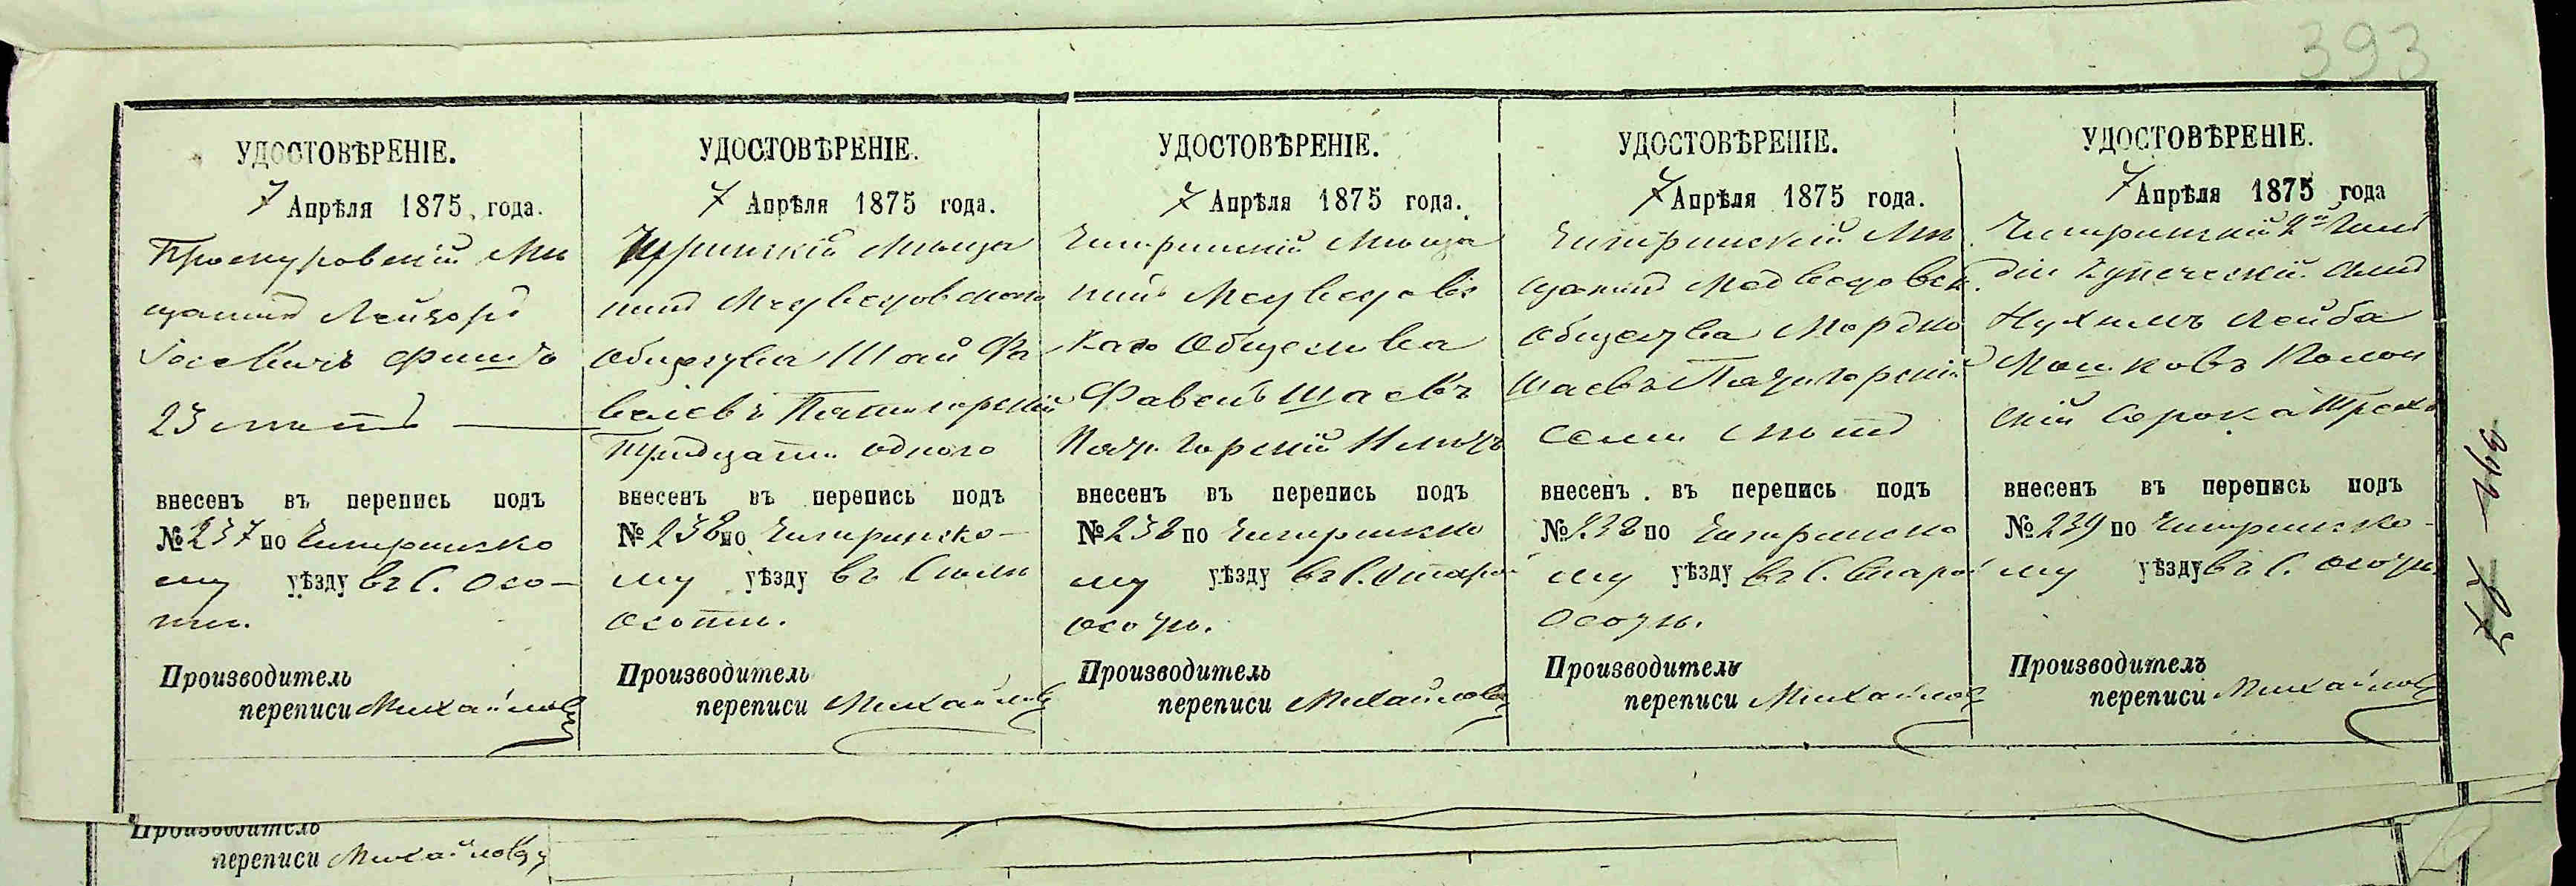 393
УДОСТОВѢРЕНІЕ.
7 Апрѣля 1875 года.
Проскуровскій Мѣ
щанинъ Лейзоръ
23 лѣтъ
внесенъ въ перепись подъ
№ 237 по Чигиринско
му уѣзду въ С. Осо-
тѣ.
Производитель
переписи Михайловъ
УДОСТОВѢРЕНІЕ.
7 Апрѣля 1875 года.
Чигринскій Мѣща
нинъ Медведовскаго
Общества Шай Фа
велевъ Пятигорскій
Тридцати одного
внесенъ въ перепись подъ
№ 238 по Чигиринско-
му уѣзду въ Селѣ
Осотѣ.
Производитель
переписи Михайловъ
УДОСТОВѢРЕНІЕ.
7 Апрѣля 1875 года.
Чигиринскій Мѣща
нинъ Медведовс
каго Общества
Фавель Шаевъ
Пятигорскій 11 лѣтъ
внесенъ въ перепись подъ
№ 238 по Чигиринско
му уѣзду въ С. Старой
Осотѣ.
Производитель
переписи Михайловъ
УДОСТОВѢРЕНІЕ.
7 Апрѣля 1875 года.
Чигиринскій Мѣ
щанинъ Медведовск.
Общества Мордко
Шаевъ Пятигорскій
семи лѣтъ
внесенъ въ перепись подъ
№ 238 по Чигиринско
му уѣзду въ С. Старой
Осотѣ.
Производитель
переписи Михайловъ
УДОСТОВѢРЕНІЕ.
7 Апрѣля 1875 года
Чигиринскій 2й Гиль
діи Купеческій сынъ
Нухимъ Лейба
Мошковъ Полон
скій Сорока Трехъ
внесенъ въ перепись подъ
№ 239 по Чигиринско-
му уѣзду въ С. Осотѣ.
Производитель
переписи Михайловъ
Производитель
переписи Михайловъ